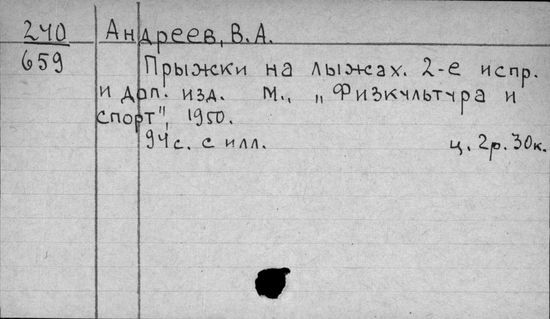 240 Андреев, В.А.
659 Прыжки на лыжах. 2-е испр.
и доп. изд. М., „Физкультура и
спорт", 1950.
94с. с илл. ц. 2р. 30к.